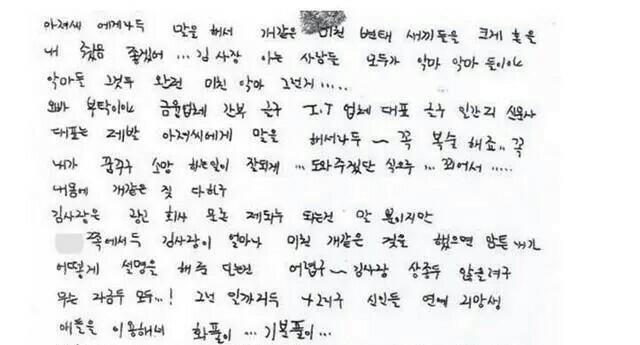 아저씨 에게나둑 말을 해서 개같은 미친 변태 새끼들을 크게 혼을
내 줬음 좋겠어 … 김 사장 아는 사람들 모두가 악마 악마 들이야
악마들 그것두 완전 미친 악마 그런거 …..
오빠 부탁이야 금융업체 간부 글구 I.T 업체 대표 글구 일간지 신문사
대표는 제발 아저씨에게 말을 해서라두 ~ 꼭 복수 해죠.. 꼭
내가 꿈꾸구 소망 하는일이 잘되게 … 도와주겠단 식으루 … 꾀어서 …..
내몸에 개같은 짓 다하구
김사장은 광고 회사 모군 제의두 되는건 말 뿐이지만
쪽에서두 김사장이 얼마나 미친 개같은 것을 했으면 암튼 내가
어떻게 설명을 해 주 어렵구 ~ 김사장 상종두 않을려구
무슨 자금두 모두 …! 그런 일까지두 신인들 연예 지망생
애들을 이용해서 화풀이 … 기분풀이 …